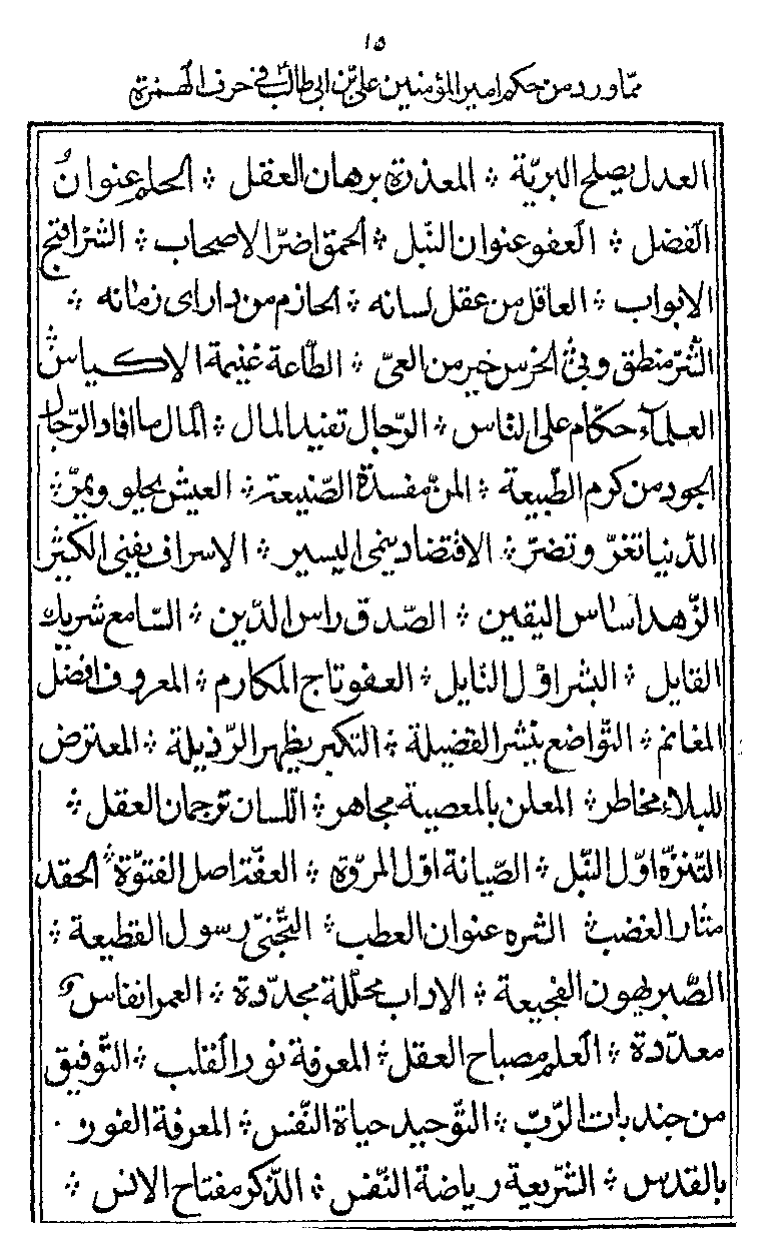 ١٥
ممّا ورد من حكم امير المؤمنين علي بن ابي طالب في حرف الهمزة
العدل يصلح البريّة ؞ المعذرة برهان العقل ؞ الحلم عنوان
الفضل ؞ العفو عنوان النّبل ؞ الحمق اضرّ الاصحاب ؞ الشرّ اقبح
الابواب ؞ العاقل من عقل لسانه ؞ الحازم من دارای زمانه ؞
الشّرّ منطق وبیّ الخرس خير من العیّ ؞ الطّاعة غنيمة الاكياس ؞
العلمآء حكّام على النّاس ؞ الرّجال تفيد المال ؞ المال ما افاد الرّجال
الجود من كرم الطّبيعة ؞ المنّ مفسدة الصّنيعة ؞ العيش يحلو ويمرّ ؞
الدّنيا تغرّ وتضرّ ؞ الاقتصاد ينمى اليسير ؞ الاسراف يفنى الكثير
الزّهد اساس اليقين ؞ الصّدق راس الدّين ؞ السّامع شريك
القايل ؞ البشر اوّل النّايل ؞ العفو تاج المكارم ؞ المعروف افضل
المغانم ؞ التّواضع ينشر الفضيلة ؞ التكبر يظهر الرّذيلة ؞ المعترض
للبلاء مخاطر ؞ المعلن بالمعصية مجاهر ؞ اللّسان ترجمان العقل ؞
التّنزّه اوّل النّبل ؞ الصّيانة اوّل المروّة ؞ العفّة اصل الفتوّة ؞ الحقد
مثار الغضب ؞ الشره عنوان العطب ؞ التّجنّى رسول القطيعة ؞
الصّبر يهون الفجيعة ؞ الاداب محلّلة مجدّدة ؞ العمر انفاس
معدّدة ؞ العلم مصباح العقل ؞ المعرفة نور القلب ؞ التّوفيق
من جذبات الرّبّ ؞ التّوحيد حياة النّفس ؞ المعرفة الفوز
بالقدس ؞ الشّريعة رياضة النّفس ؞ الذّكر مفتاح الانس ؞